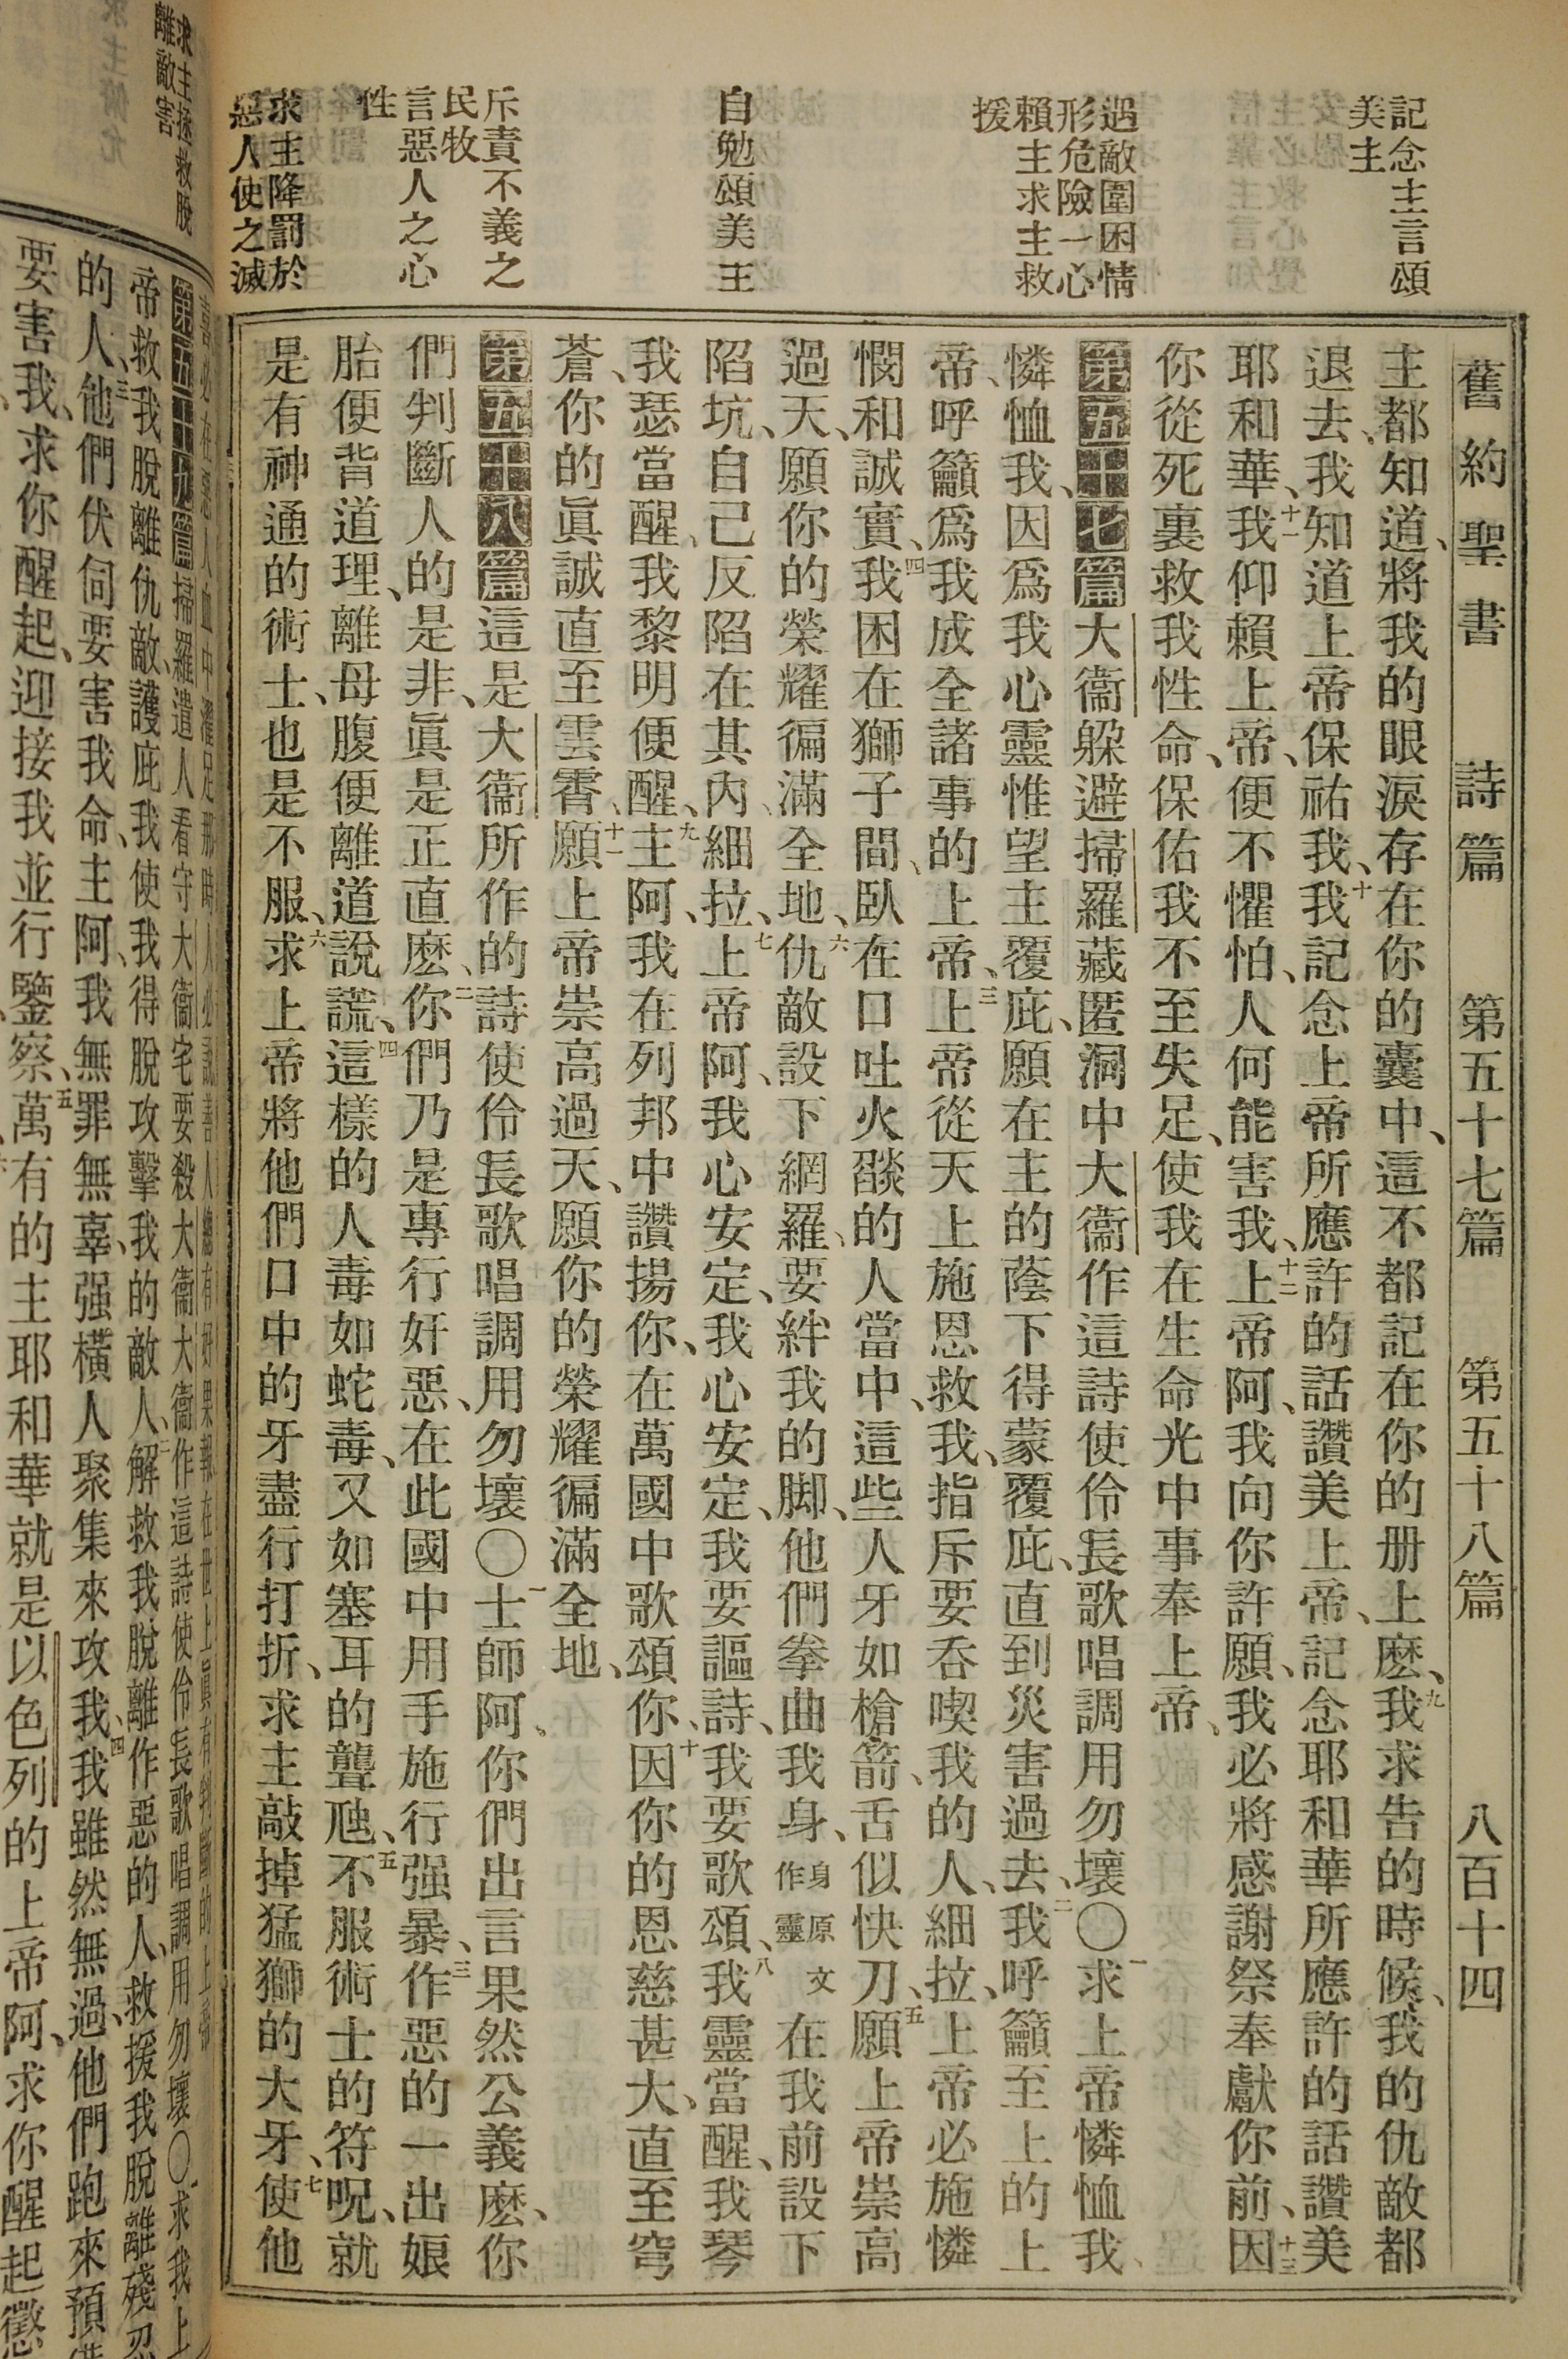 舊約聖書 詩篇 第五十七篇 第五十八篇 八百十四
記念主言頌
美主
遇敵圍困情
形危險一心
賴主求主救
援
自勉頌美主
斥責不義之
民牧
言惡人之心
性
求主降罰於
惡人使之滅
主都知道、將我的眼淚存在你的囊中、這不都記在你的册上麽、九我求告的時候、我的仇敵都
退去、我知道上帝保祐我、十我記念上帝所應許的話讚美上帝、記念耶和華所應許的話讚美
耶和華、十一我仰賴上帝、便不懼怕、人何能害我、十二上帝阿、我向你許願、我必將感謝祭奉獻你前、十三因
你從死裏救我性命、保佑我不至失足、使我在生命光中事奉上帝、
第五十七篇 大衞躲避掃羅藏匿洞中大衞作這詩使伶長歌唱調用勿壞〇一求上帝憐恤我、
憐恤我、因爲我心靈惟望主覆庇、願在主的蔭下得蒙覆庇、直到災害過去、二我呼籲至上的上
帝、呼籲爲我成全諸事的上帝、三上帝從天上施恩救我、指斥要吞喫我的人、細拉、上帝必施憐
憫和誠實、四我困在獅子間、臥在口吐火燄的人當中、這些人牙如槍箭、舌似快刀、五願上帝崇高
過天、願你的榮耀徧滿全地、六仇敵設下網羅、要絆我的脚、他們拳曲我身、身原文作靈在我前設下
陷坑、自己反陷在其內、細拉、七上帝阿、我心安定、我心安定、我要謳詩、我要歌頌、八我靈當醒、我琴
我瑟當醒、我黎明便醒、九主阿、我在列邦中讚揚你、在萬國中歌頌你、十因你的恩慈甚大、直至穹
蒼、你的眞誠直至雲霄、十一願上帝崇高過天、願你的榮耀徧滿全地、
第五十八篇 這是大衞所作的詩使伶長歌唱調用勿壞〇一士師阿、你們出言果然公義麽、你
們判斷人的是非、眞是正直麽、二你們乃是專行奸惡、在此國中用手施行强暴、三作惡的一出娘
胎便背道理、離母腹便離道說謊、四這樣的人毒如蛇毒、又如塞耳的聾虺、五不服術士的符呪、就
是有神通的術士、也是不服、六求上帝將他們口中的牙盡行打折、求主敲掉猛獅的大牙、七使他
求主拯救脫
離敵害
第五十九篇 掃羅遣人看守大衞宅要殺大衞大衞作這詩使伶長歌唱調用勿壞〇一求我上
帝救我脫離仇敵、護庇我使我得脫攻擊我的敵人、二解救我脫離作惡的人、救援我脫離殘忍
的人、三他們伏伺要害我命、主阿、我無罪無辜、强橫人聚集來攻我、四我雖然無過、他們跑來預
要害我、求你醒起、迎接我並行鑒察、五萬有的主耶和華就是以色列的上帝阿、求你醒起懲